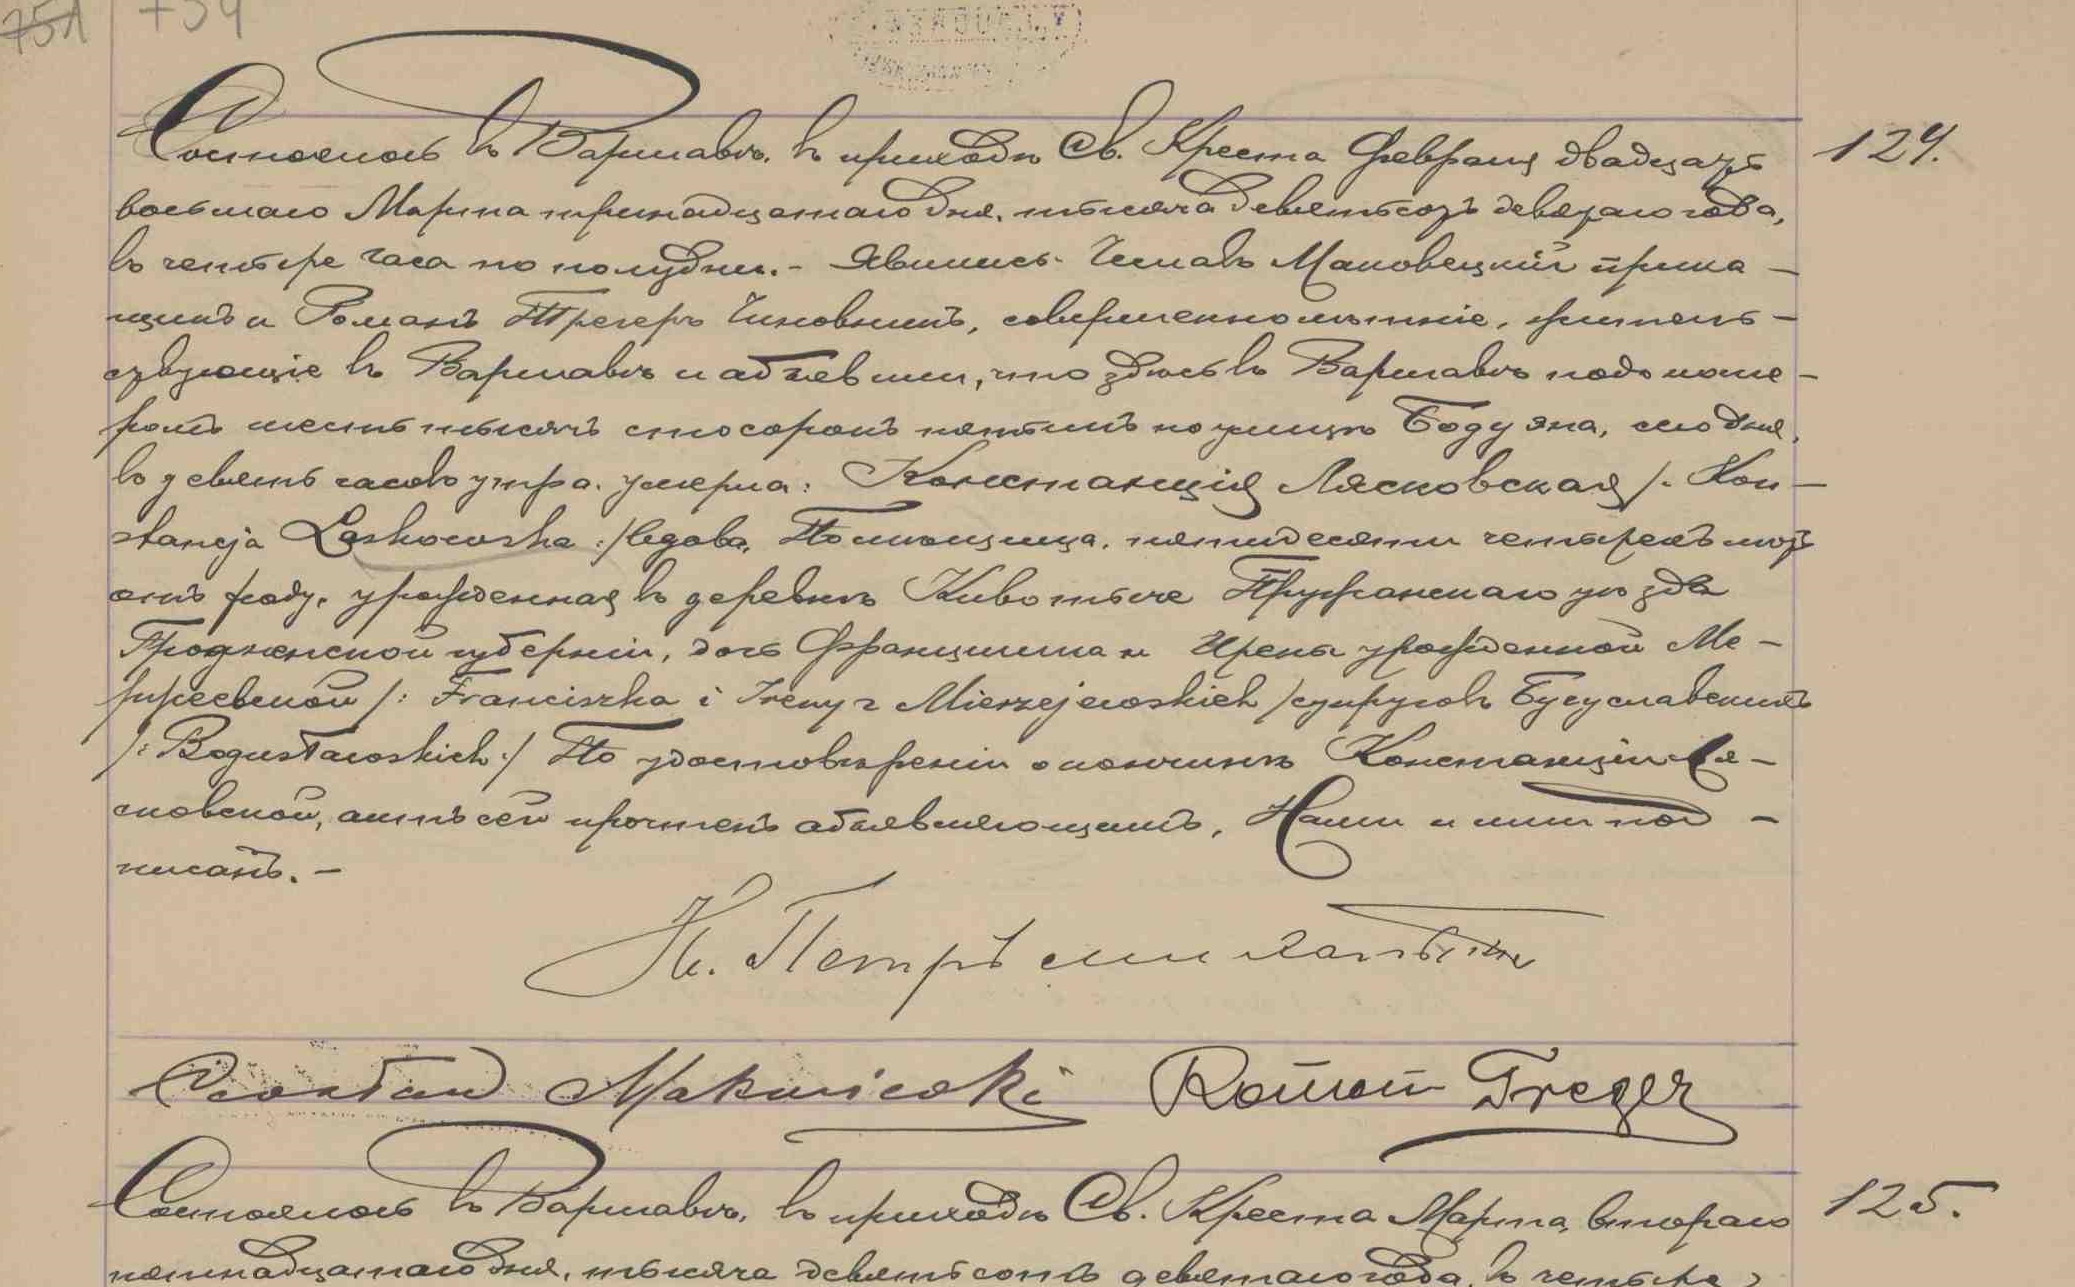 751 734
124.
Состоялось въ Варшавѣ, въ приходѣ Св. Креста Февраля двадцать
восьмаго Марта тринадцатаго дня, тысяча девятьсотъ девятаго года,
въ четыре часа по полудни. – Явились Чеславъ Маковецкій прика –
щикъ и Романъ Трегеръ чиновникъ, совершеннолѣтніе, житель –
ствующіе въ Варшавѣ и объявили, что здѣсь въ Варшавѣ подъ номе –
ромъ шесть тысячъ сто сорокъ пятымъ по улицѣ Бодуэна, сего дня,
въ девять часовъ утра, умерла: Констанція Лясковская /: Kon –
stancja Laskowska :/ вдова, помѣщица, пятидесяти четырехъ лѣтъ
отъ роду, урожденная въ деревнѣ Кивотыче Пружанскаго уѣзда
Гродненской губерніи, дочь Францишка и Ирены урожденной Ме –
ржеевской /: Franciszka i Ireny z Mierzejewskich / супруговъ Бугуславскихъ
/: Bogusławskich :/ По удостовѣреніи о кончинѣ Констанціи Ля –
сковской, актъ сей прочтенъ объявляющимъ, Нами и ими под –
писанъ. –
Н. Петръ
Makowiecki Roman Treger
125.
Состоялось въ Варшавѣ, въ приходѣ Св. Креста Марта втораго
пятнадцатаго дня, тысяча девятьсотъ девятаго года, въ четыре